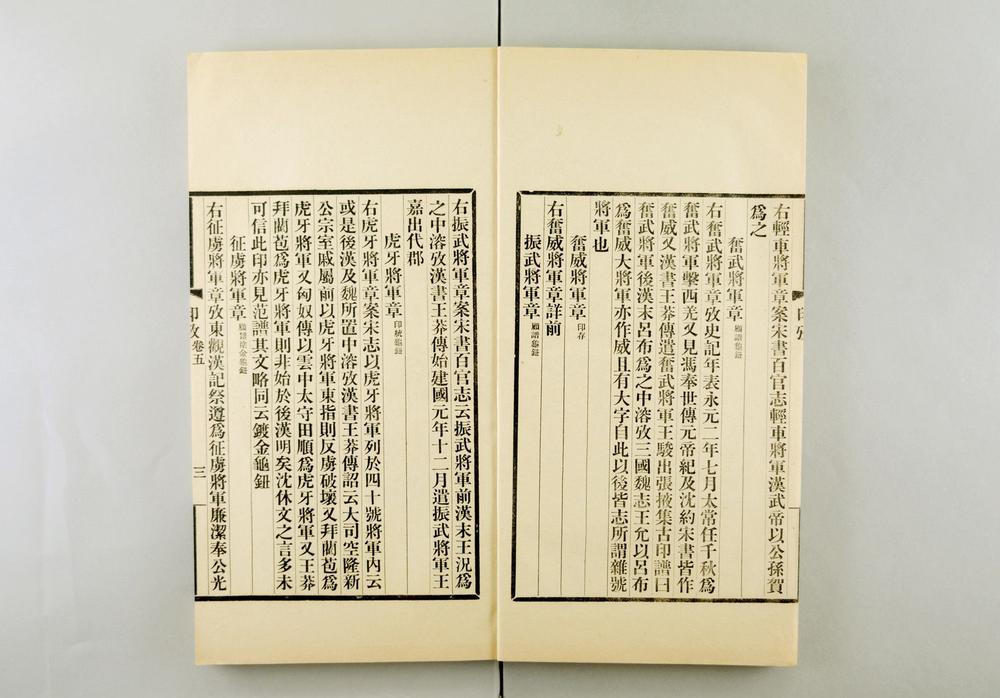 右輕車將軍章案宋書百官志輕車將軍漢武帝以公孫賀
爲之
奮武將軍章 顧譜龜鈕
右奮武將軍章攷史記年表永元二年七月太常任千秋爲
奮武將軍擊西羌又見馮奉世傳元帝紀及沈約宋書皆作
奮威又漢書王莽傳遣奮武將軍王駿出張掖集古印譜曰
奮武將軍後漢末呂布爲之中溶攷三國魏志王允以呂布
爲奮威大將軍亦作威且有大字自此以後皆志所謂雜號
將軍也
奮威將軍章 印存
右奮威將軍章詳前
振武將軍章 顧譜龜鈕
印攷
右振武將軍章案宋書百官志云振武將軍前漢末王況爲
之中溶攷漢書王莽傳始建國元年十二月遣振武將軍王
嘉出代郡
虎牙將軍章 印統龜鈕
右虎牙將軍章案宋志以虎牙將軍列於四十號將軍內云
或是後漢及魏所置中溶攷漢書王莽傳詔云大司空隆新
公宗室戚屬前以虎牙將軍東指則反虜破壞又拜藺苞爲
虎牙將軍又匈奴傳以雲中太守田順爲虎牙將軍又王莽
拜藺苞爲虎牙將軍則非始於後漢明矣沈休文之言多未
可信此印亦見范譜其文略同云鍍金龜鈕
征虜將軍章 顧譜塗金龜鈕
右征虜將軍章攷東觀漢記祭遵爲征虜將軍廉潔奉公光
印攷卷五
三